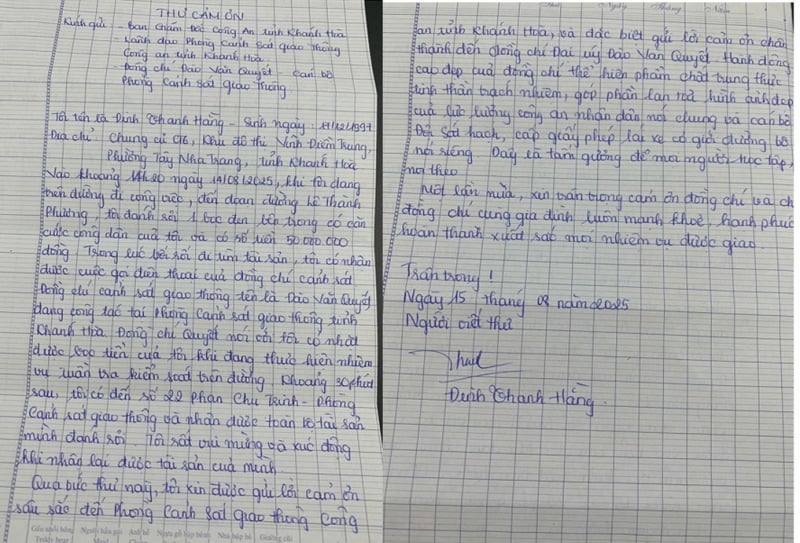 THƯ CẢM ƠN
Kính gửi: - Ban Giám Đốc Công An tỉnh Khánh Hoà
- Lãnh đạo Phòng Cảnh Sát giao Thông
Công an tỉnh Khánh Hoà.
- Đồng chí Đào Văn Quyết - cán bộ
Phòng Cảnh Sát giao Thông
Tôi tên là Đinh Thanh Hằng - Sinh ngày: /12/1997
Địa chỉ: Chung cư CT6, Khu đô thị Vĩnh Điềm Trung,
Phường Tây Nha Trang, tỉnh Khánh Hoà
Vào khoảng 14h20 ngày 14/08/2025, khi tôi đang
trên đường đi công việc, đến đoạn đường Lê Thành
Phương, tôi đánh rơi 1 bọc đen bên trong có căn
cước công dân của tôi và có số tiền 50.000.000
đồng. Trong lúc bối rối đi tìm tài sản, tôi có nhận
được cuộc gọi điện thoại của đồng chí cảnh sát
Đồng chí cảnh sát giao thông tên là Đào Văn Quyết
đang công tác tại Phòng Cảnh sát giao thông tỉnh
Khánh Hoà. Đồng chí Quyết nói với tôi có nhặt
được bọc tiền của tôi khi đang thực hiện nhiệm
vụ tuần tra kiểm soát trên đường. Khoảng 30 phút
sau, tôi có đến số 22 Phan Chu Trinh - Phòng
Cảnh sát giao thông và nhận được toàn bộ tài sản
mình đánh rơi. Tôi rất vui mừng và xúc động
khi nhận lại được tài sản của mình.
Qua bức thư này, tôi xin được gửi lời cảm ơn
sâu sắc đến Phòng Cảnh sát giao thông Công
an tỉnh Khánh Hoà, và đặc biệt gửi lời cảm ơn chân
thành đến đồng chí Đại uý Đào Văn Quyết. Hành động
cao đẹp của đồng chí thể hiện phẩm chất trung thực
tinh thần trách nhiệm, góp phần lan toả hình ảnh đẹp
của lực lượng công an nhân dân nói chung và cán bộ
Đội Sát hạch, cấp giấy phép lái xe cơ giới đường bộ
nói riêng. Đây là tấm gương để mọi người học tập,
noi theo
Một lần nữa, xin trân trọng cảm ơn đồng chí và ch
đồng chí cùng gia đình luôn mạnh khoẻ, hạnh phúc
hoàn thành xuất sắc mọi nhiệm vụ được giao.
Trân trọng!
Ngày 15 tháng 08 năm 2025
Người viết thư
Đinh Thanh Hằng.